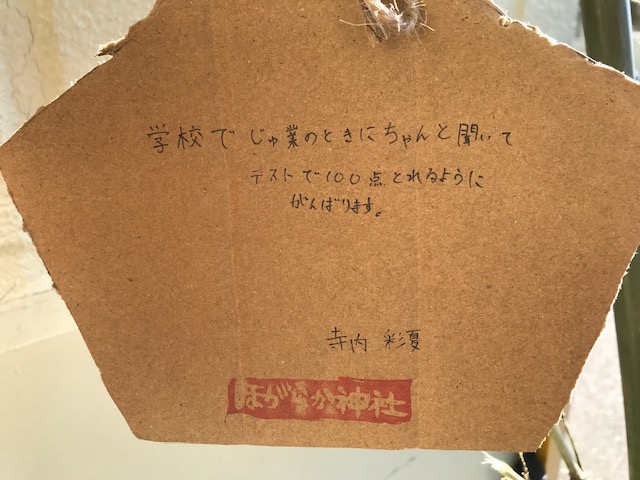 学校でじゅ業のときにちゃんと聞いて
テストで100点とれるように
がんばります。
寺内 彩夏
ほがらか神社